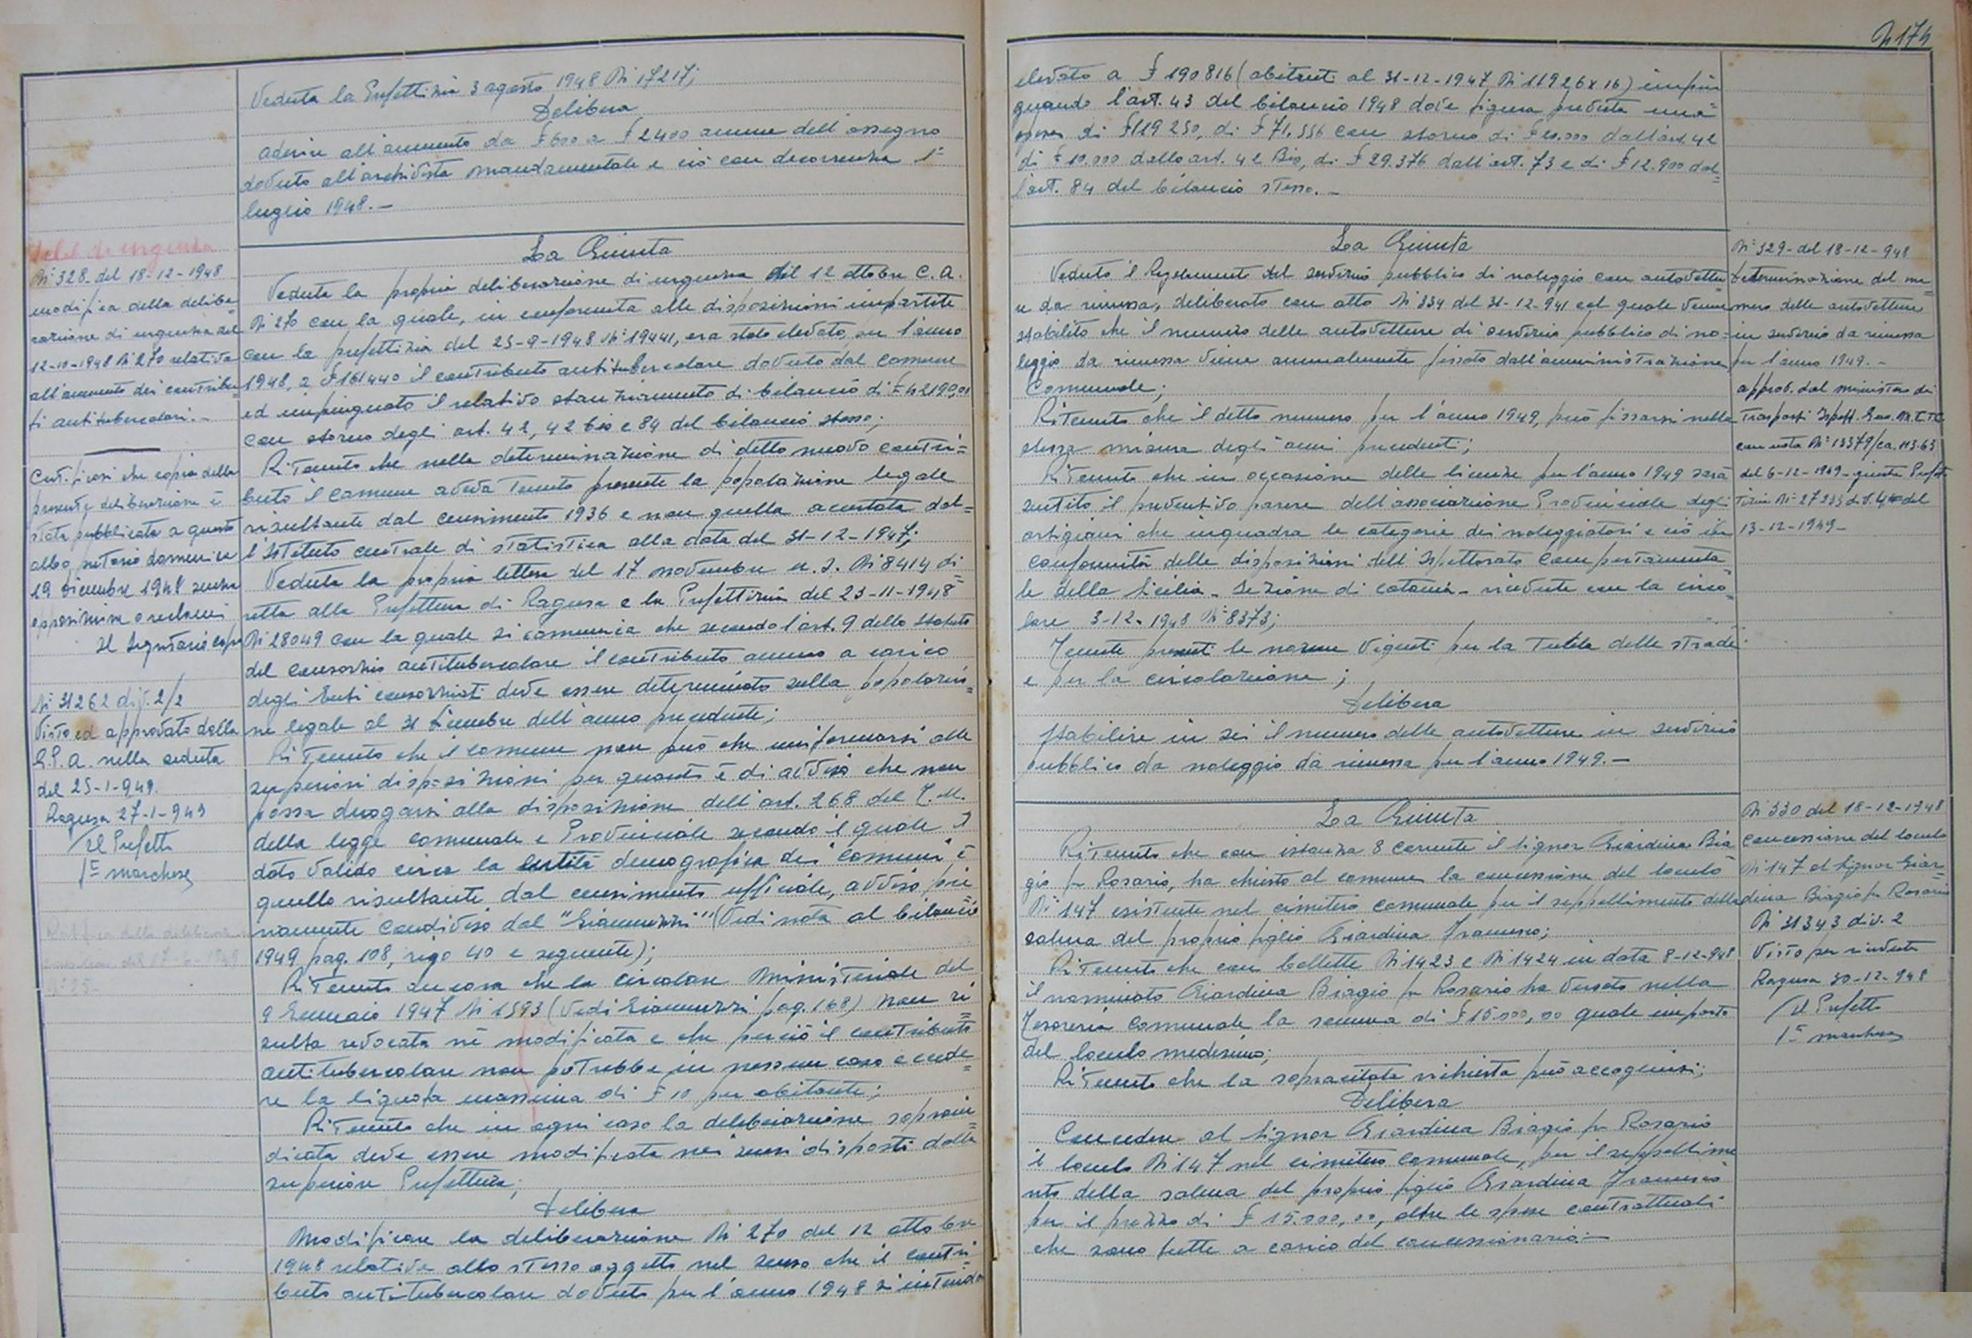 Veduta la Prefettizia 3 agosto 1948 N: 17217;
Delibera
aderire all'aumento da £ 600 a £ 2400 annue dell'assegno
dovuto all'archivista mandamentale e ciò con decorrenza 1°
luglio 1948.—
Delib. di urgenza
N° 328 del 18-12-1948
modifica della delibe-
razione di urgenza del
12-10-1948 N: 270 relativa
all'aumento dei contribu-
ti antitubercolari.—
Certificasi che copia della
presente deliberazione è
stata pubblicata a questo
albo pretorio domenica
19 dicembre 1948 senza
opposizioni o reclami
Il Segretario capo
N: 31262 div. 2/2
Visto ed approvato dalla
G.P.A. nella seduta
del 25-1-949.
Ragusa 27-1-949
Il Prefetto
1° Marchese
La Giunta
Veduta la propria deliberazione di urgenza del 12 ottobre c.a.
N: 270 con la quale, in conformità alle disposizioni impartite
con la prefettizia del 25-9-1948 N: 19441, era stato elevato, per l'anno
1948, a £ 161440 il contributo antitubercolare dovuto dal comune
ed impinguato il relativo stanziamento di bilancio di £ 42199,01
con storno degli art. 42, 42 bis e 84 del bilancio stesso;
Ritenuto che nella determinazione di detto nuovo contri-
buto il comune aveva tenuto presente la popolazione legale
risultante dal censimento 1936 e non quella accertata dal-
l'Istituto centrale di statistica alla data del 31-12-1947;
Veduta la propria lettera del 17 novembre u.s. N: 8414 di-
retta alla Prefettura di Ragusa e la Prefettizia del 23-11-1948
N: 28049 con la quale si comunica che secondo l'art. 9 dello Statuto
del consorzio antitubercolare il contributo annuo a carico
degli Enti consorziati deve essere determinato sulla popolazio-
ne legale al 31 dicembre dell'anno precedente;
Ritenuto che il comune non può che uniformarsi alle
superiori disposizioni per quanto è di avviso che non
possa derogarsi alla disposizione dell'art. 268 del T.U.
della legge comunale e Provinciale secondo il quale il
dato valido circa la entità demografica dei comuni è
quello risultante dal censimento ufficiale, avviso pie-
namente condiviso dal "Giannuzzi" (Vedi nota al bilancio
1949 pag. 108, rigo 40 e seguente);
Ritenuto ancora che la circolare Ministeriale del
9 Gennaio 1947 N: 1593 (Vedi Giannuzzi pag. 168) non ri-
sulta revocata nè modificata e che perciò il contributo
antitubercolare non potrebbe in nessun caso eccede-
re la liquota massima di £ 10 per abitante;
Ritenuto che in ogni caso la deliberazione soprain-
dicata deve essere modificata nei sensi disposti dalla
superiore Prefettura;
Delibera
Modificare la deliberazione N: 270 del 12 ottobre
1948 relativa allo stesso oggetto nel senso che il contri-
buto antitubercolare dovuto per l'anno 1948 si intenda
174
elevato a £ 190816 (abitanti al 31-12-1947 N: 11926 x 16) impin-
guando l'art. 43 del bilancio 1948 dove figura prevista una
spesa di £ 119250, di £ 71,556 con storno di £ 20.000 dall'art. 42
di £ 10.000 dallo art. 42 Bis, di £ 29.376 dall'art. 73 e di £ 12.900 dal-
l'art. 84 del bilancio stesso.—
La Giunta
Veduto il Regolamento del servizio pubblico di noleggio con autovettu-
re da rimessa, deliberato con atto N: 334 del 31-12-941 col quale venne
stabilito che il numero delle autovetture di servizio pubblico di no-
leggio da rimessa viene annualmente fissato dall'amministrazione
Comunale;
Ritenuto che il detto numero per l'anno 1949, può fissarsi nella
stessa misura degli anni precedenti;
Ritenuto che in occasione delle licenze per l'anno 1949 sarà
sentito il preventivo parere dell'associazione Provinciale degli
artigiani che inquadra le categorie dei noleggiatori e ciò in
conformità delle disposizioni dell'Ispettorato Compartimenta-
le della Sicilia - Sezione di Catania - ricevute con la circo-
lare 3-12-1948 N: 8373;
Tenute presenti le norme vigenti per la tutela delle strade
e per la circolazione;
Delibera
Stabilire in sei il numero delle autovetture in servizio
pubblico da noleggio da rimessa per l'anno 1949.—
N: 329 del 18-12-948
determinazione del nu-
mero delle autovetture
in servizio da rimessa
per l'anno 1949.—
approv. dal ministero dei
Trasporti Ispett. Gen. M.C.T.C.
con nota N: 13379/
del 6-12-1949 - giusta Prefet-
tizia N: del
13-12-1949-
La Giunta
Ritenuto che con istanza 8 corrente il Signor Giardina Bia-
gio fu Rosario, ha chiesto al comune la concessione del loculo
N: 147 esistente nel cimitero comunale per il seppellimento della
salma del proprio figlio Giardina Francesco;
Ritenuto che con bollette N: 1423 e N: 1424 in data 8-12-948
il nominato Giardina Biagio fu Rosario ha versato nella
Tesoreria Comunale la somma di £ 15.000,00 quale importo
del loculo medesimo;
Ritenuto che la sopracitata richiesta può accogliersi;
Delibera
Concedere al Signor Giardina Biagio fu Rosario
il loculo N: 147 nel cimitero comunale, per il seppellime-
nto della salma del proprio figlio Giardina Francesco
per il prezzo di £ 15.000,00, oltre le spese contrattuali
che sono tutte a carico del concessionario.—
N: 330 del 18-12-1948
concessione del loculo
N: 147 al Signor Giar-
dina Biagio fu Rosario
N: 31343 div. 2
Visto per ricevuta
Ragusa 30-12-948
Il Prefetto
1° Marchese